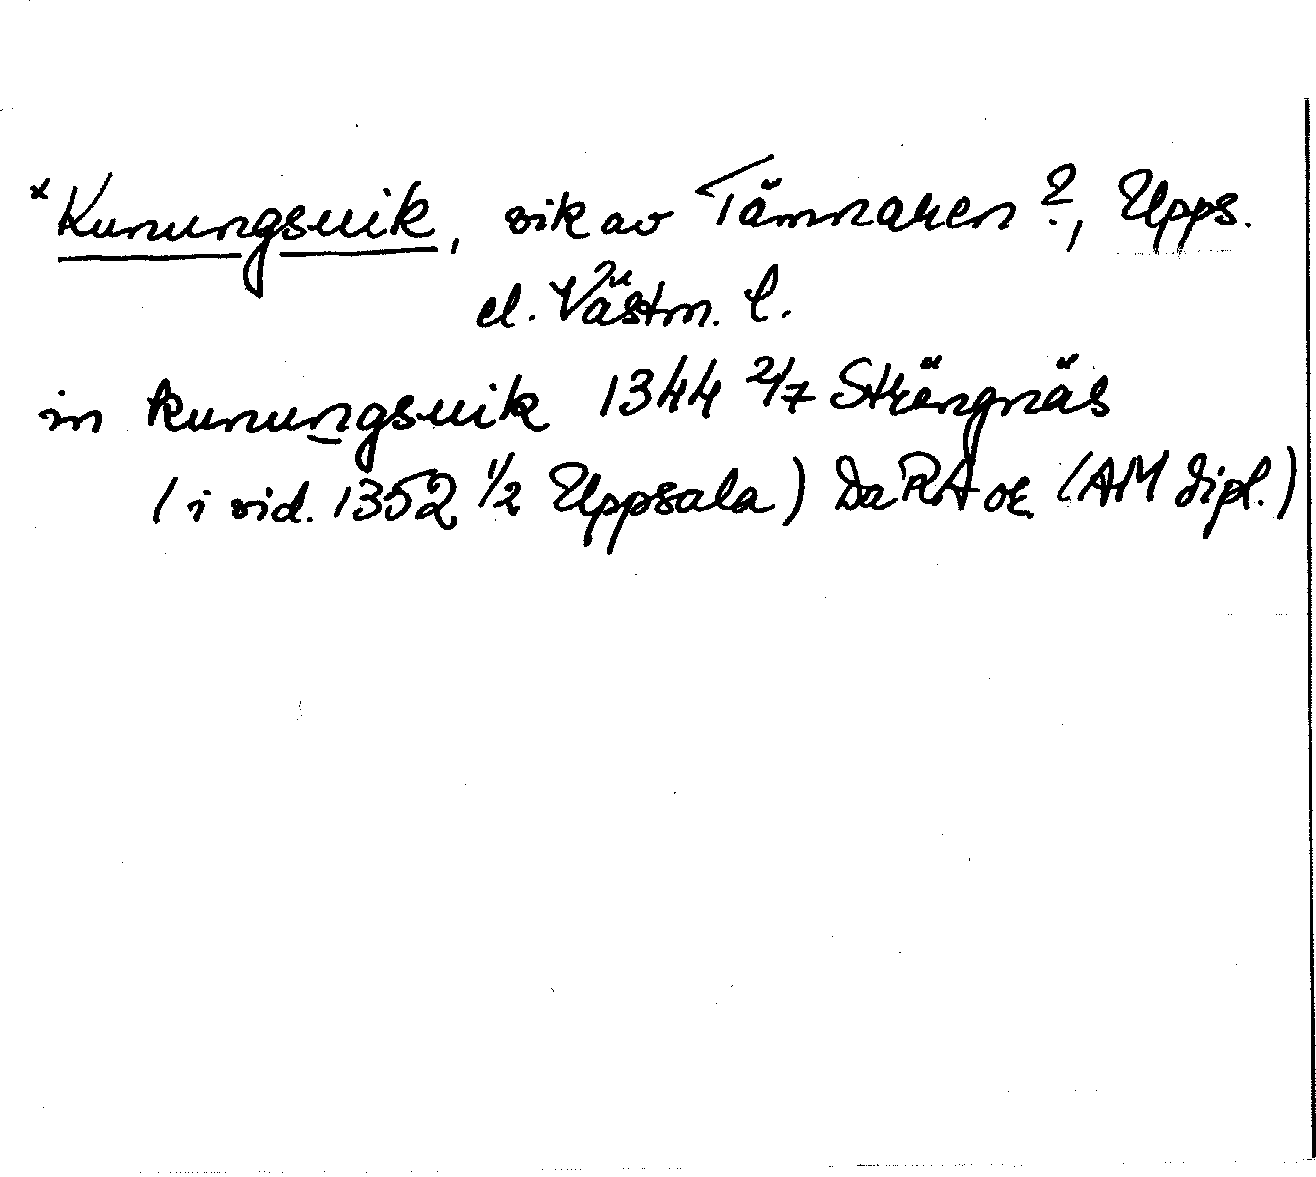 *Kunungsuik, vik av Tämnaren?, Upps.
el. Västm. l.
in kunungsuik 1344 2/7 Strängnäs
(i vid. 1352 1/2 Uppsala) DaRA or. (AM dipl.)